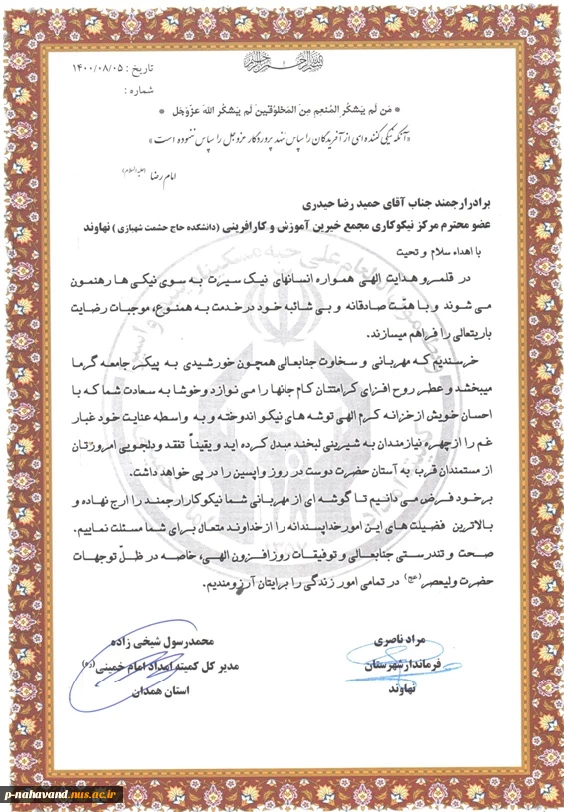 بسم الله الرحمن الرحیم
تاریخ : ۱۴۰۰/۰۸/۰۵
شماره :
« مَن لَم یَشکُرِ المُنعِمَ مِنَ المَخلوقینَ لَم یَشکُرِ اللهَ عزّوجَل »
«آنکه نیکی کننده ای از آفریدگان را سپاس ننهد پروردگار عزوجل را سپاس ننموده است»
امام رضا (علیه السلام)
برادرارجمند جناب آقای حمید رضا حیدری
عضو محترم مرکز نیکوکاری مجمع خیرین آموزش و کارآفرینی (دانشکده حاج حشمت شهبازی ) نهاوند
با اهداء سلام و تحیت
در قلمرو هدایت الهی همواره انسانهای نیک سیرت به سوی نیکی ها رهنمون
می شوند و با همّت صادقانه و بی شائبه خود در خدمت به همنوع، موجبات رضایت
باریتعالی را فراهم میسازند.
خرسندیم که مهربانی و سخاوت جنابعالی همچون خورشیدی به پیکر جامعه گرما
میبخشد و عطر روح افزای کرامتتان کام جانها را می نوازد وخوشا به سعادت شما که با
احسان خویش از خزانه کرم الهی توشه های نیکو اندوخته و به واسطه عنایت خود غبار
غم را از چهره نیازمندان به شیرینی لبخند مبدل کرده اید و یقیناً تفقد و دلجویی امروزتان
از مستمندان قرب به آستان حضرت دوست در روز واپسین را در پی خواهد داشت.
برخود فرض می دانیم تا گوشه ای از مهربانی شما نیکوکار ارجمند را ارج نهاده و
بالاترین فضیلت های این امور خداپسندانه را از خداوند متعال برای شما مسئلت نماییم.
صحت و تندرستی جنابعالی و توفیقات روزافزون الهی، خاصه در ظلّ توجهات
حضرت ولیعصر(عج) در تمامی امور زندگی را برایتان آرزومندیم.
مراد ناصری
فرماندارشهرستان
نهاوند
محمدرسول شیخی زاده
مدیر کل کمیته امداد امام خمینی(ره)
استان همدان
۱۳۵۷
p-nahavand.nus.ac.ir